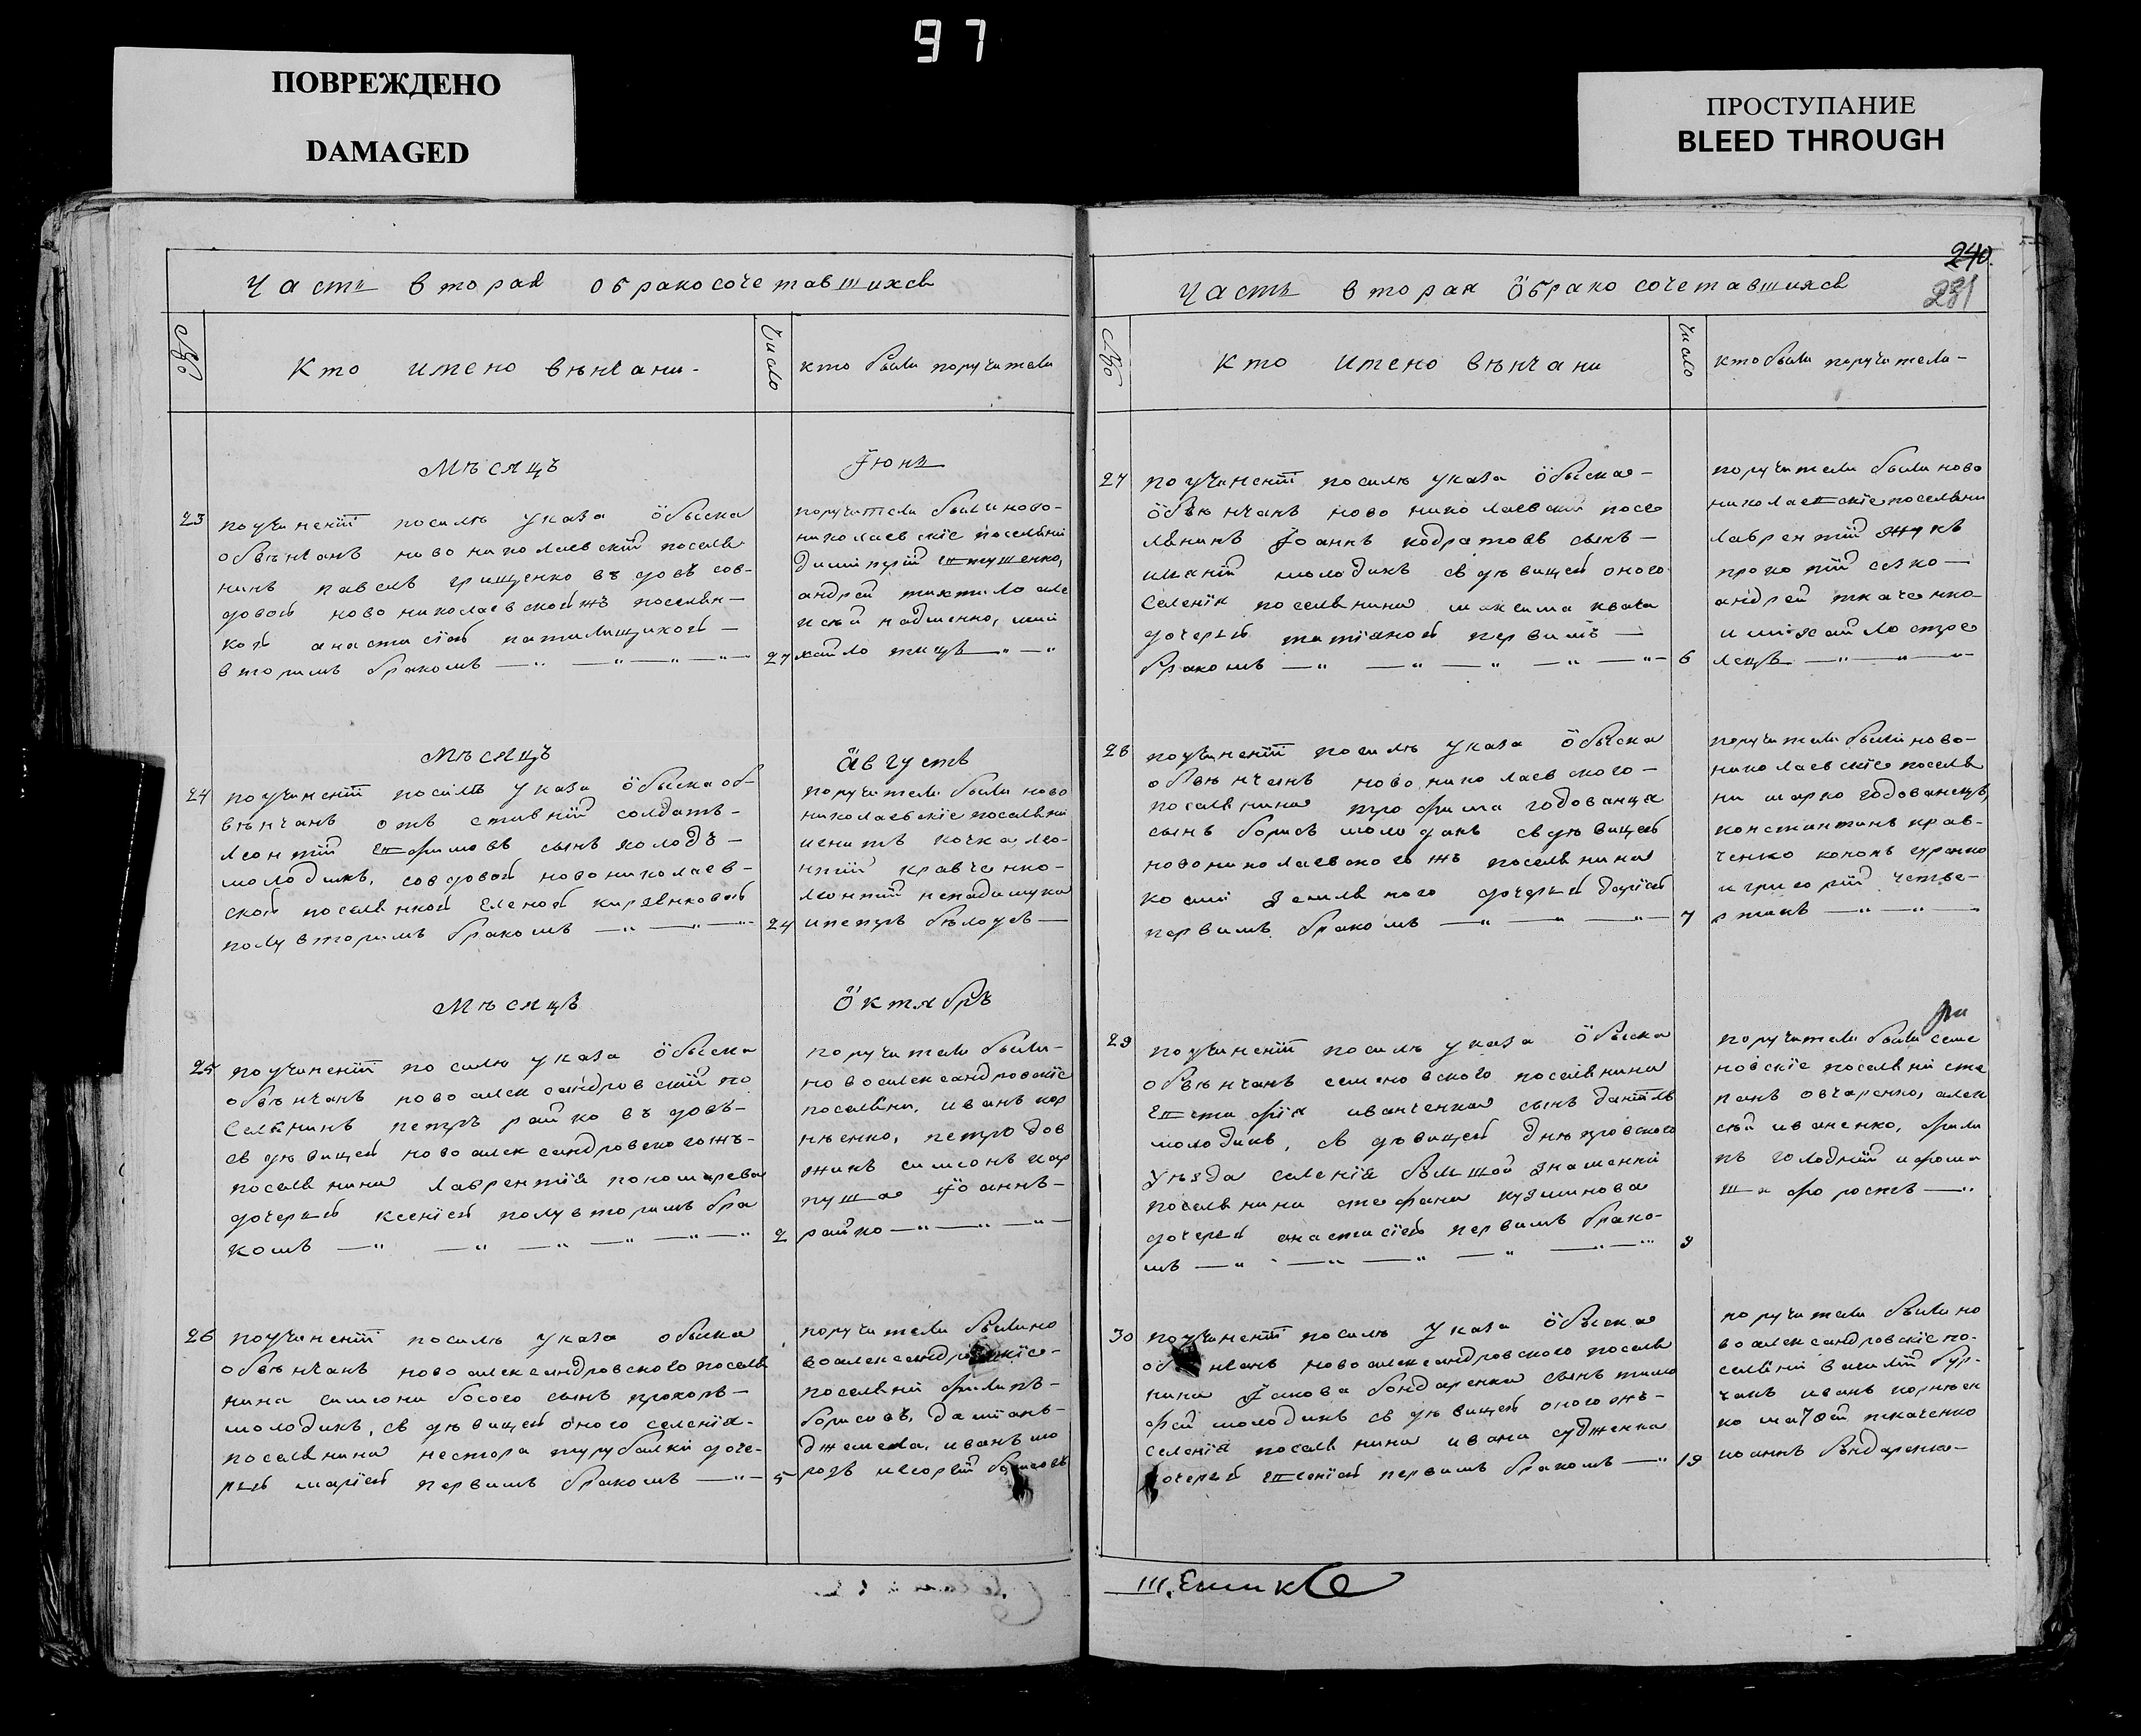 97
ПОВРЕЖДЕНО
DAMAGED
ПРОСТУПАНИЕ
BLEED THROUGH
Часть вторая о бракосочетавшихся
№
Кто имено вѣнчани
Число
кто были поручители
Мѣсяцъ Іюнь
23
поучиненіи посилѣ указа обыска
обвѣнчанъ новониколаевскій поселя
нинъ павелъ грищенко вдовъ совдовой новониколаевскойжъ поселян-
кой анастасіей
вторимъ бракомъ
27
поручители были ново-
николаевскіе поселяни
димитрій
андрей але
ксѣй надменно, ми
хайло
Мѣсяцъ Августъ
24
поучиненіи посилѣ указа обыска об-
вѣнчанъ отъ ставній солдатъ
леонтій сынъ холодъ
молодикъ, совдовой новониколаев-
ской поселянкой еленой
полувторимъ бракомъ
24
поручители были ново
николаевскіе поселяни
игнатъ кочка, лео-
нтій кравченко
леонтій непадимука
ипетръ бѣлоусъ
Мѣсяцъ Октябрь
25
поучиненіи посилѣ указа обыска
обвѣнчанъ новоалександровскій по
селянинъ петръ райко вдовъ
св дѣвицей новоалександровскогожъ
поселянина лаврентія
дочерей ксеніей полувторимъ бра
комъ
2
поручители были
новоалександровскіе
поселяни, иванъ кор
нѣенко, петро дов
жикъ симеонъ кар
пуша іоаннъ
райко
26
поучиненіи посилѣ указа обыска
обвѣнчанъ новоалександровского поселя
нина симеона босого сынъ прохоръ
молодикъ, св дѣвицей оного селенія
поселянина нестора турубалки доче-
рей маріей первимъ бракомъ
5
поручители были но
воалександровскіе
поселяни филипъ
борисовъ, даміанъ
джемела, иванъ мо
розъ
Часть вторая о бракосочетавшихся
240
231
№
Кто имено вѣнчани
Число
кто были поручители
27
поучиненіи посилѣ указа обыска
обвѣнчанъ новониколаевскій посе
лянинъ Іоаннъ кодратовъ сынъ
молодикъ св дѣвицей оного
селенія поселянина максима квача
дочерей татіаной первимъ
бракомъ
6
поручители были ново
николаевскіе поселяни
лаврентій жукъ
прокопій
андрей ткаченко
и михайло стре
лецъ
28
поучиненіи посилѣ указа обыска
обвѣнчанъ новониколаевского
поселянина трофима годованца
сынъ борисъ молодикъ св дѣвицей
новониколаевскогожъ поселянина
космі земляного дочерей даріей
первимъ бракомъ
7
поручители были ново-
николаевскіе поселя
ни марко годованецъ,
константинъ крав-
ченко
и григорій четве-
ртакъ
29
поучиненіи посилѣ указа обыска
обвѣнчанъ семеновского поселянина
евстафія иванченка сынъ даніилъ
молодикъ, св дѣвицей днѣпровского
уѣзда селенія большой знаменки
поселянина стефана кузминова
дочерей анастасіей первимъ брако-
мъ
9
поручители были семе
новскіе поселяни сте
панъ овчаренко, алек
сѣй иваненко, фили
пъ голодній ифома
30
поучиненіи посилѣ указа обыска
новоалександровского поселя
нина Іакова бондаренка сынъ тимо
фей молодикъ св дѣвицей оногожъ
селенія поселянина ивана судженка
дочерей первимъ бракомъ
19
поручители были но
воалександровскіе по-
селяни василій бур-
чакъ иванъ корнѣен
ко матѳей ткаченко
иоаннъ бондаренко